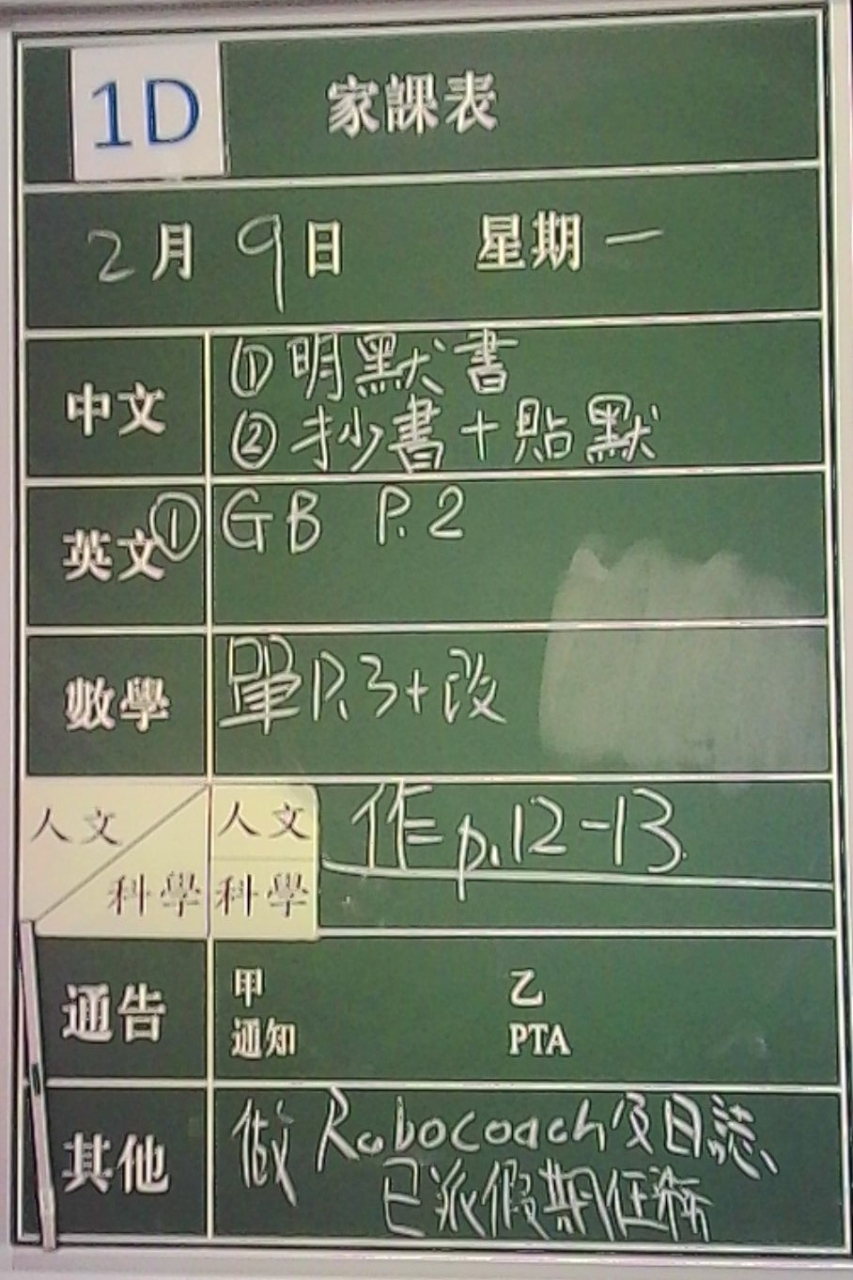 1D 家課表
2月9日 星期一
中文 ①明默書
②抄書+貼默
英文 ①GB P.2
數學 單P.3+改
人文 人文 作p.12-13
科學 科學
通告 甲 乙
通知 PTA
其他 做Robocoach及日誌、
已派假期任務